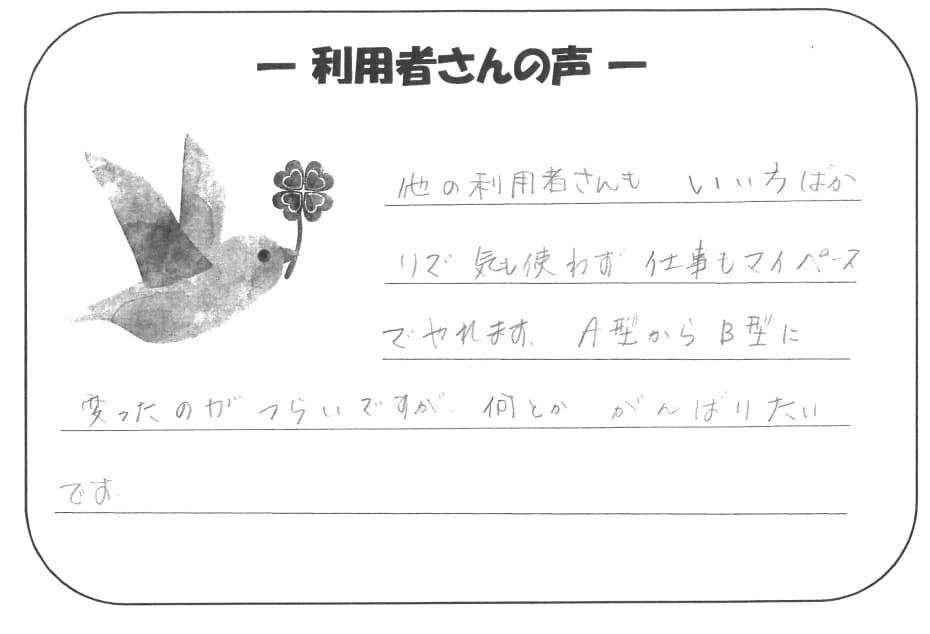 ― 利用者さんの声 ―
他の利用者さんも いい方ばか
りで 気も使わず 仕事もマイペース
でやれます。 A型からB型に
変ったのが つらいですが、何とか がんばりたい
です。